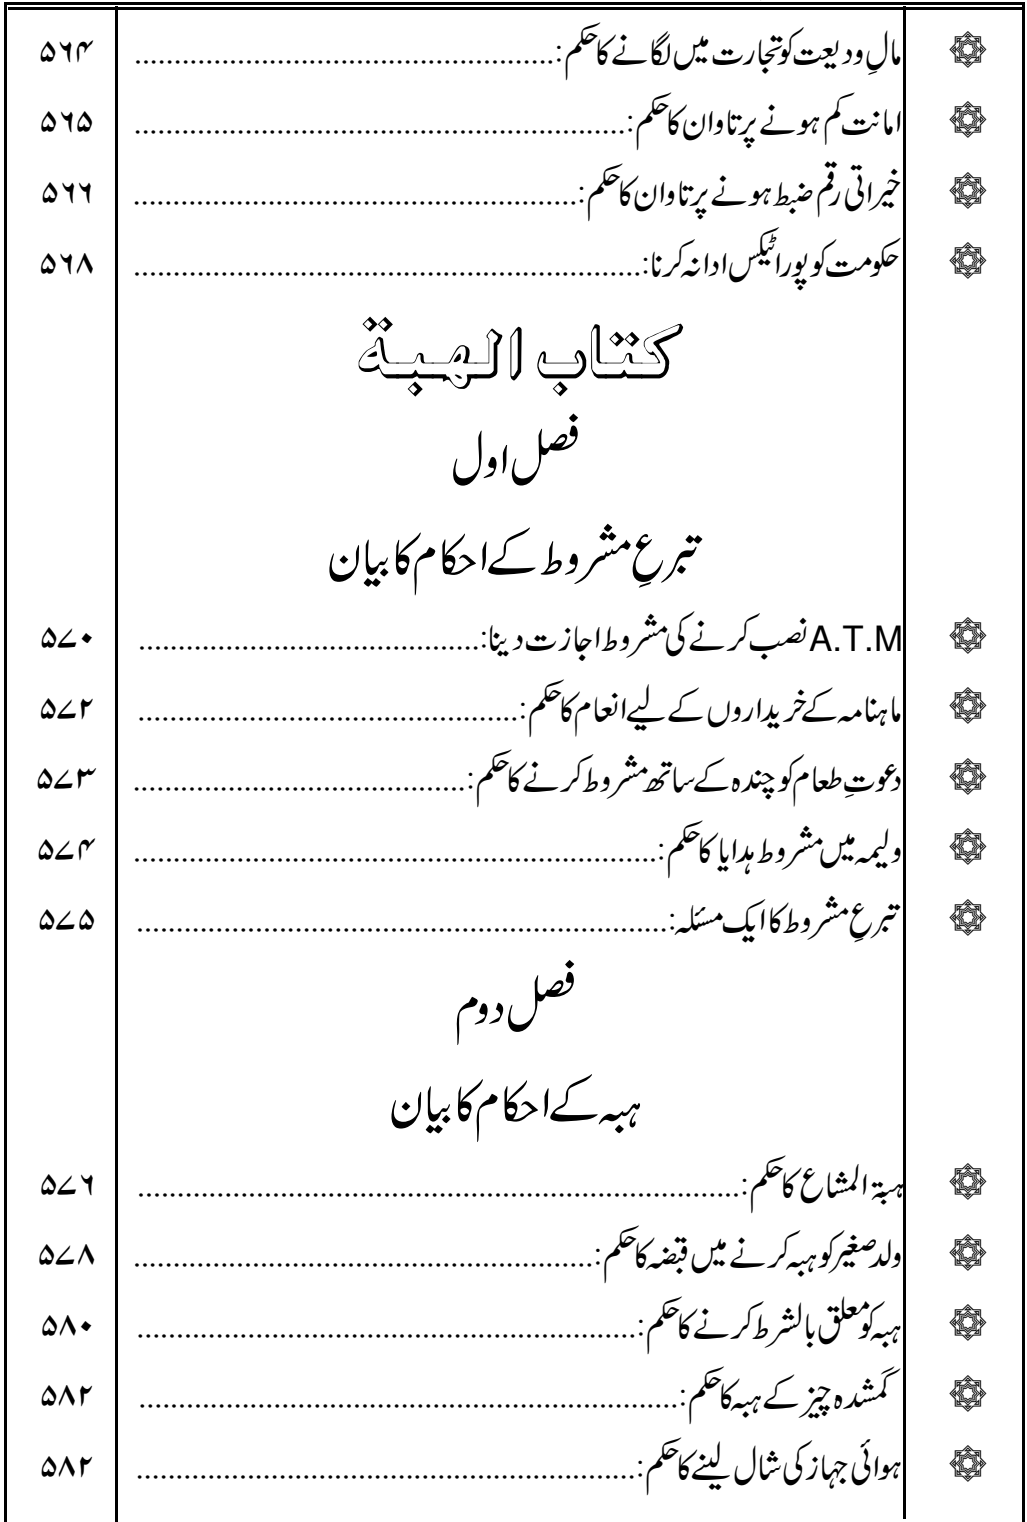 مالِ ودیعت کو تجارت میں لگانے کا حکم: ۵۶۴
امانت کم ہونے پر تاوان کا حکم: ۵۶۵
خیراتی رقم ضبط ہونے پر تاوان کا حکم: ۵۶۶
حکومت کو پورا ٹیکس ادا نہ کرنا: ۵۶۸
کتاب الہبة
فصل اول
تبرعِ مشروط کے احکام کا بیان
A.T.M نصب کرنے کی مشروط اجازت دینا: ۵۷۰
ماہنامہ کے خریداروں کے لیے انعام کا حکم: ۵۷۲
دعوتِ طعام کو چندہ کے ساتھ مشروط کرنے کا حکم: ۵۷۳
ولیمہ میں مشروط ہدایا کا حکم: ۵۷۴
تبرعِ مشروط کا ایک مسئلہ: ۵۷۵
فصل دوم
ہبہ کے احکام کا بیان
ہبة المشاع کا حکم: ۵۷۶
ولد صغیر کو ہبہ کرنے میں قبضہ کا حکم: ۵۷۸
ہبہ کو معلق بالشرط کرنے کا حکم: ۵۸۰
گمشدہ چیز کے ہبہ کا حکم: ۵۸۲
ہوائی جہاز کی شال لینے کا حکم: ۵۸۲